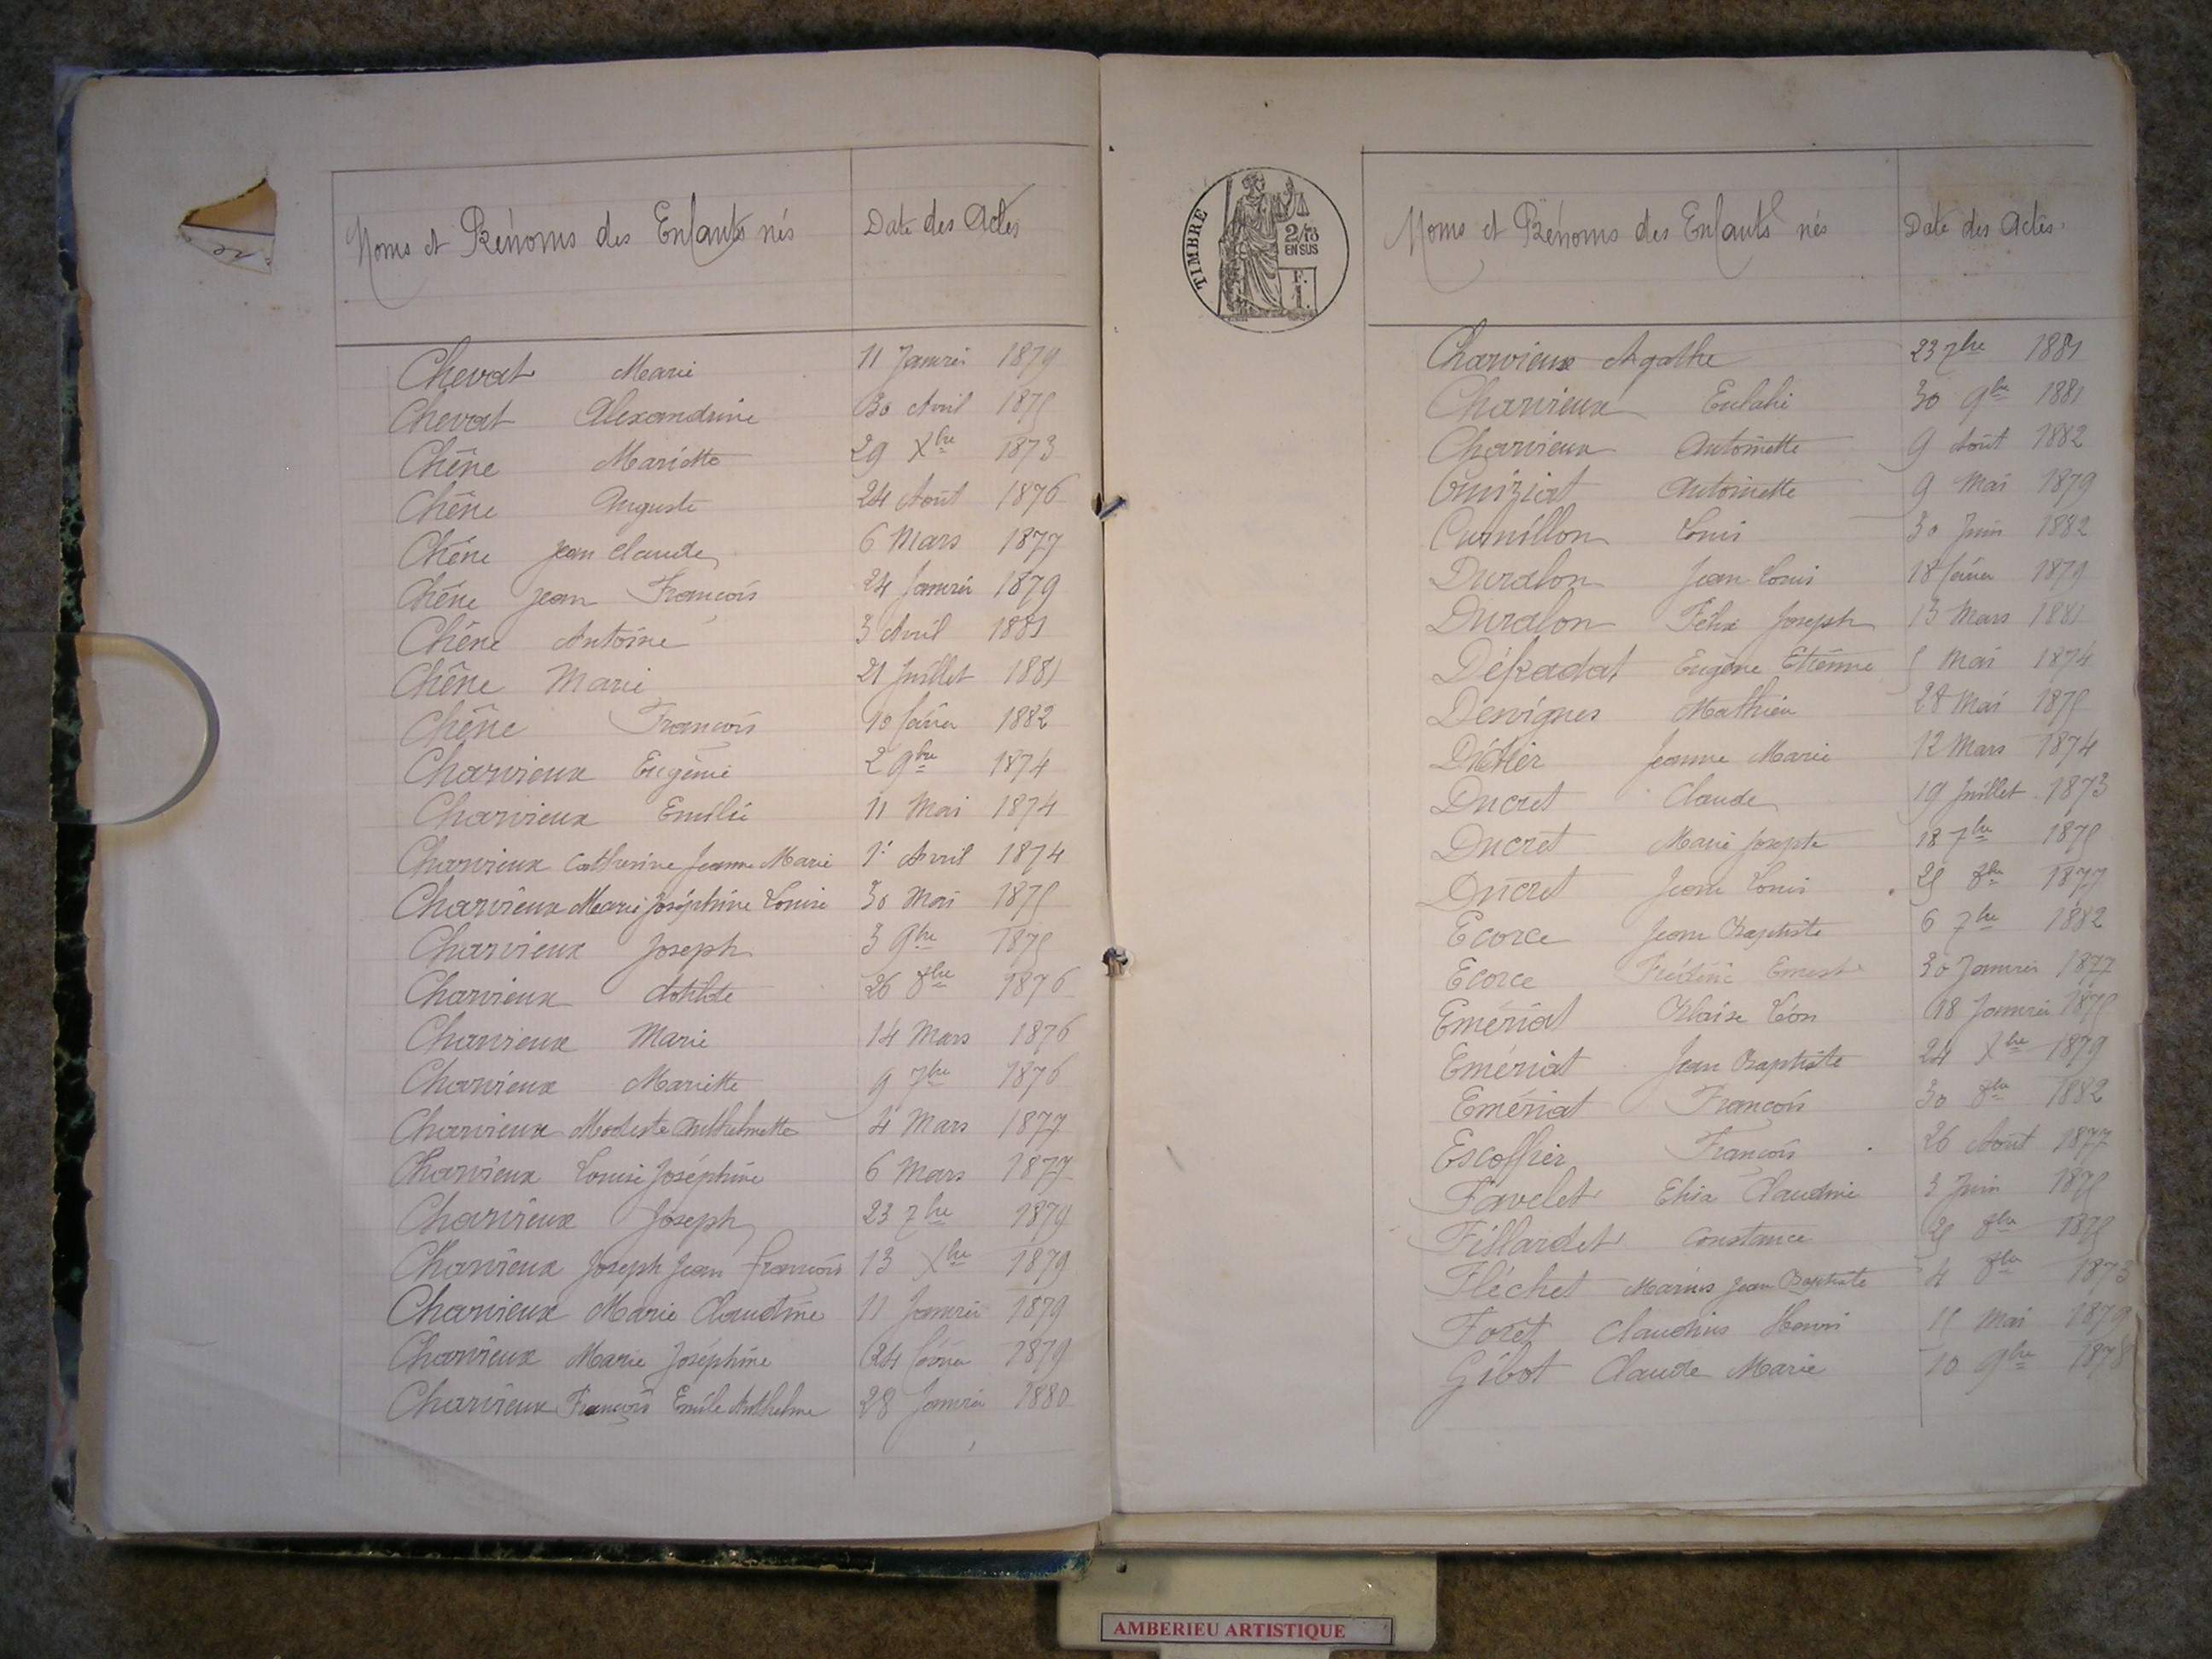 Noms et Prénoms des Enfants nés Date des Actes
Chevat Marie 11 Janvier 1879
Chevat Alexandrine 30 Avril 1875
Chêne Mariette 29 Xbre 1873
Chêne Auguste 24 Août 1876
Chêne Jean Claude 6 Mars 1877
Chêne Jean François 24 Janvier 1879
Chêne Antoine 3 Avril 1881
Chêne Marie 21 Juillet 1881
Chêne François 10 février 1882
Charvieux Eugénie 2 9bre 1874
Charvieux Emélie 11 Mai 1874
Charvieux Catherine Jeanne Marie 1er Avril 1874
Charvieux Marie Joséphine Louise 30 Mai 1875
Charvieux Joseph 3 9bre 1875
Charvieux Clotilde 26 8bre 1876
Charvieux Marie 14 Mars 1876
Charvieux Mariette 9 7bre 1876
Charvieux Modeste Anthelmette 4 Mars 1877
Charvieux Louise Joséphine 6 Mars 1877
Charvieux Joseph 23 7bre 1879
Charvieux Joseph Jean François 13 Xbre 1879
Charvieux Marie Claudine 11 Janvier 1879
Charvieux Marie Joséphine 24 février 1879
Charvieux François Emile Anthelme 28 Janvier 1880
TIMBRE
2/10
EN SUS
F.
1.
Noms et Prénoms des Enfants nés Date des Actes
Charvieux Agathe 23 7bre 1881
Charvieux Eulalie 30 9bre 1881
Charvieux Antoinette 9 Août 1882
Antoinette 9 Mai 1879
Cumillon Louis 30 Juin 1882
Duralon Jean Louis 18 février 1879
Duralon Félix Joseph 13 Mars 1881
Eugène Etienne 5 Mai 1874
Desvignes Mathieu 28 Mai 1875
Didier Jeanne Marie 12 Mars 1874
Ducret Claude 19 Juillet 1873
Ducret Marie Josephte 18 7bre 1875
Ducret Jean Louis 25 8bre 1877
Ecorce Jean Baptiste 6 7bre 1882
Ecorce Frédéric Ernest 30 Janvier 1877
Emériat Blaise Léon 18 Janvier 1875
Emériat Jean Baptiste 24 Xbre 1879
Emériat François 30 8bre 1882
Escoffier François 26 Août 1877
Favelet Claudine 3 Juin 1875
Fillardet Constance 25 8bre 1875
Fléchet Marius Jean Baptiste 4 8bre 1873
Forêt Claudius Henri 15 Mai 1879
Gibot Claude Marie 10 9bre 1878
AMBERIEU ARTISTIQUE